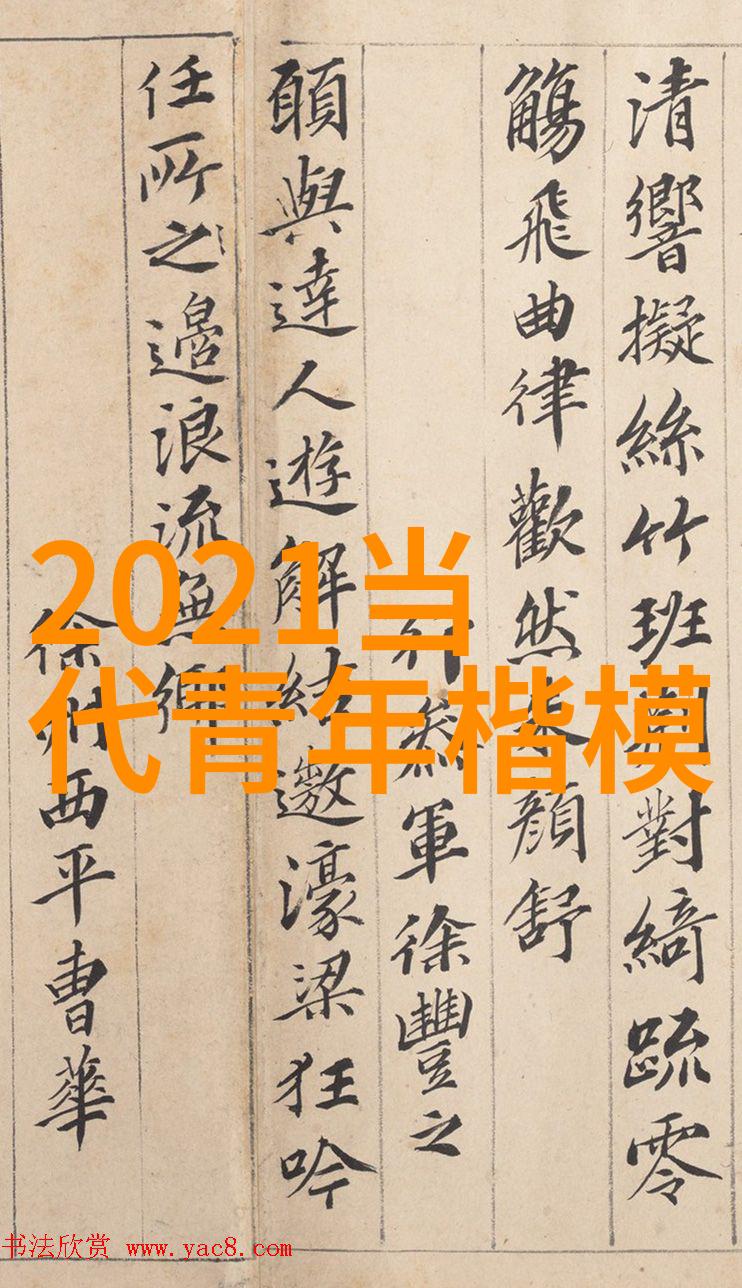 清響擬絲竹班荆對綺疏零
觴飛曲律歡然朱顔舒
行叅軍徐豐之
願與達人遊解結遨濠梁狂吟
任所之邉浪流無鄉
徐州西平曹華
2021当
代青年楷模
书法欣赏 www.yac8.com